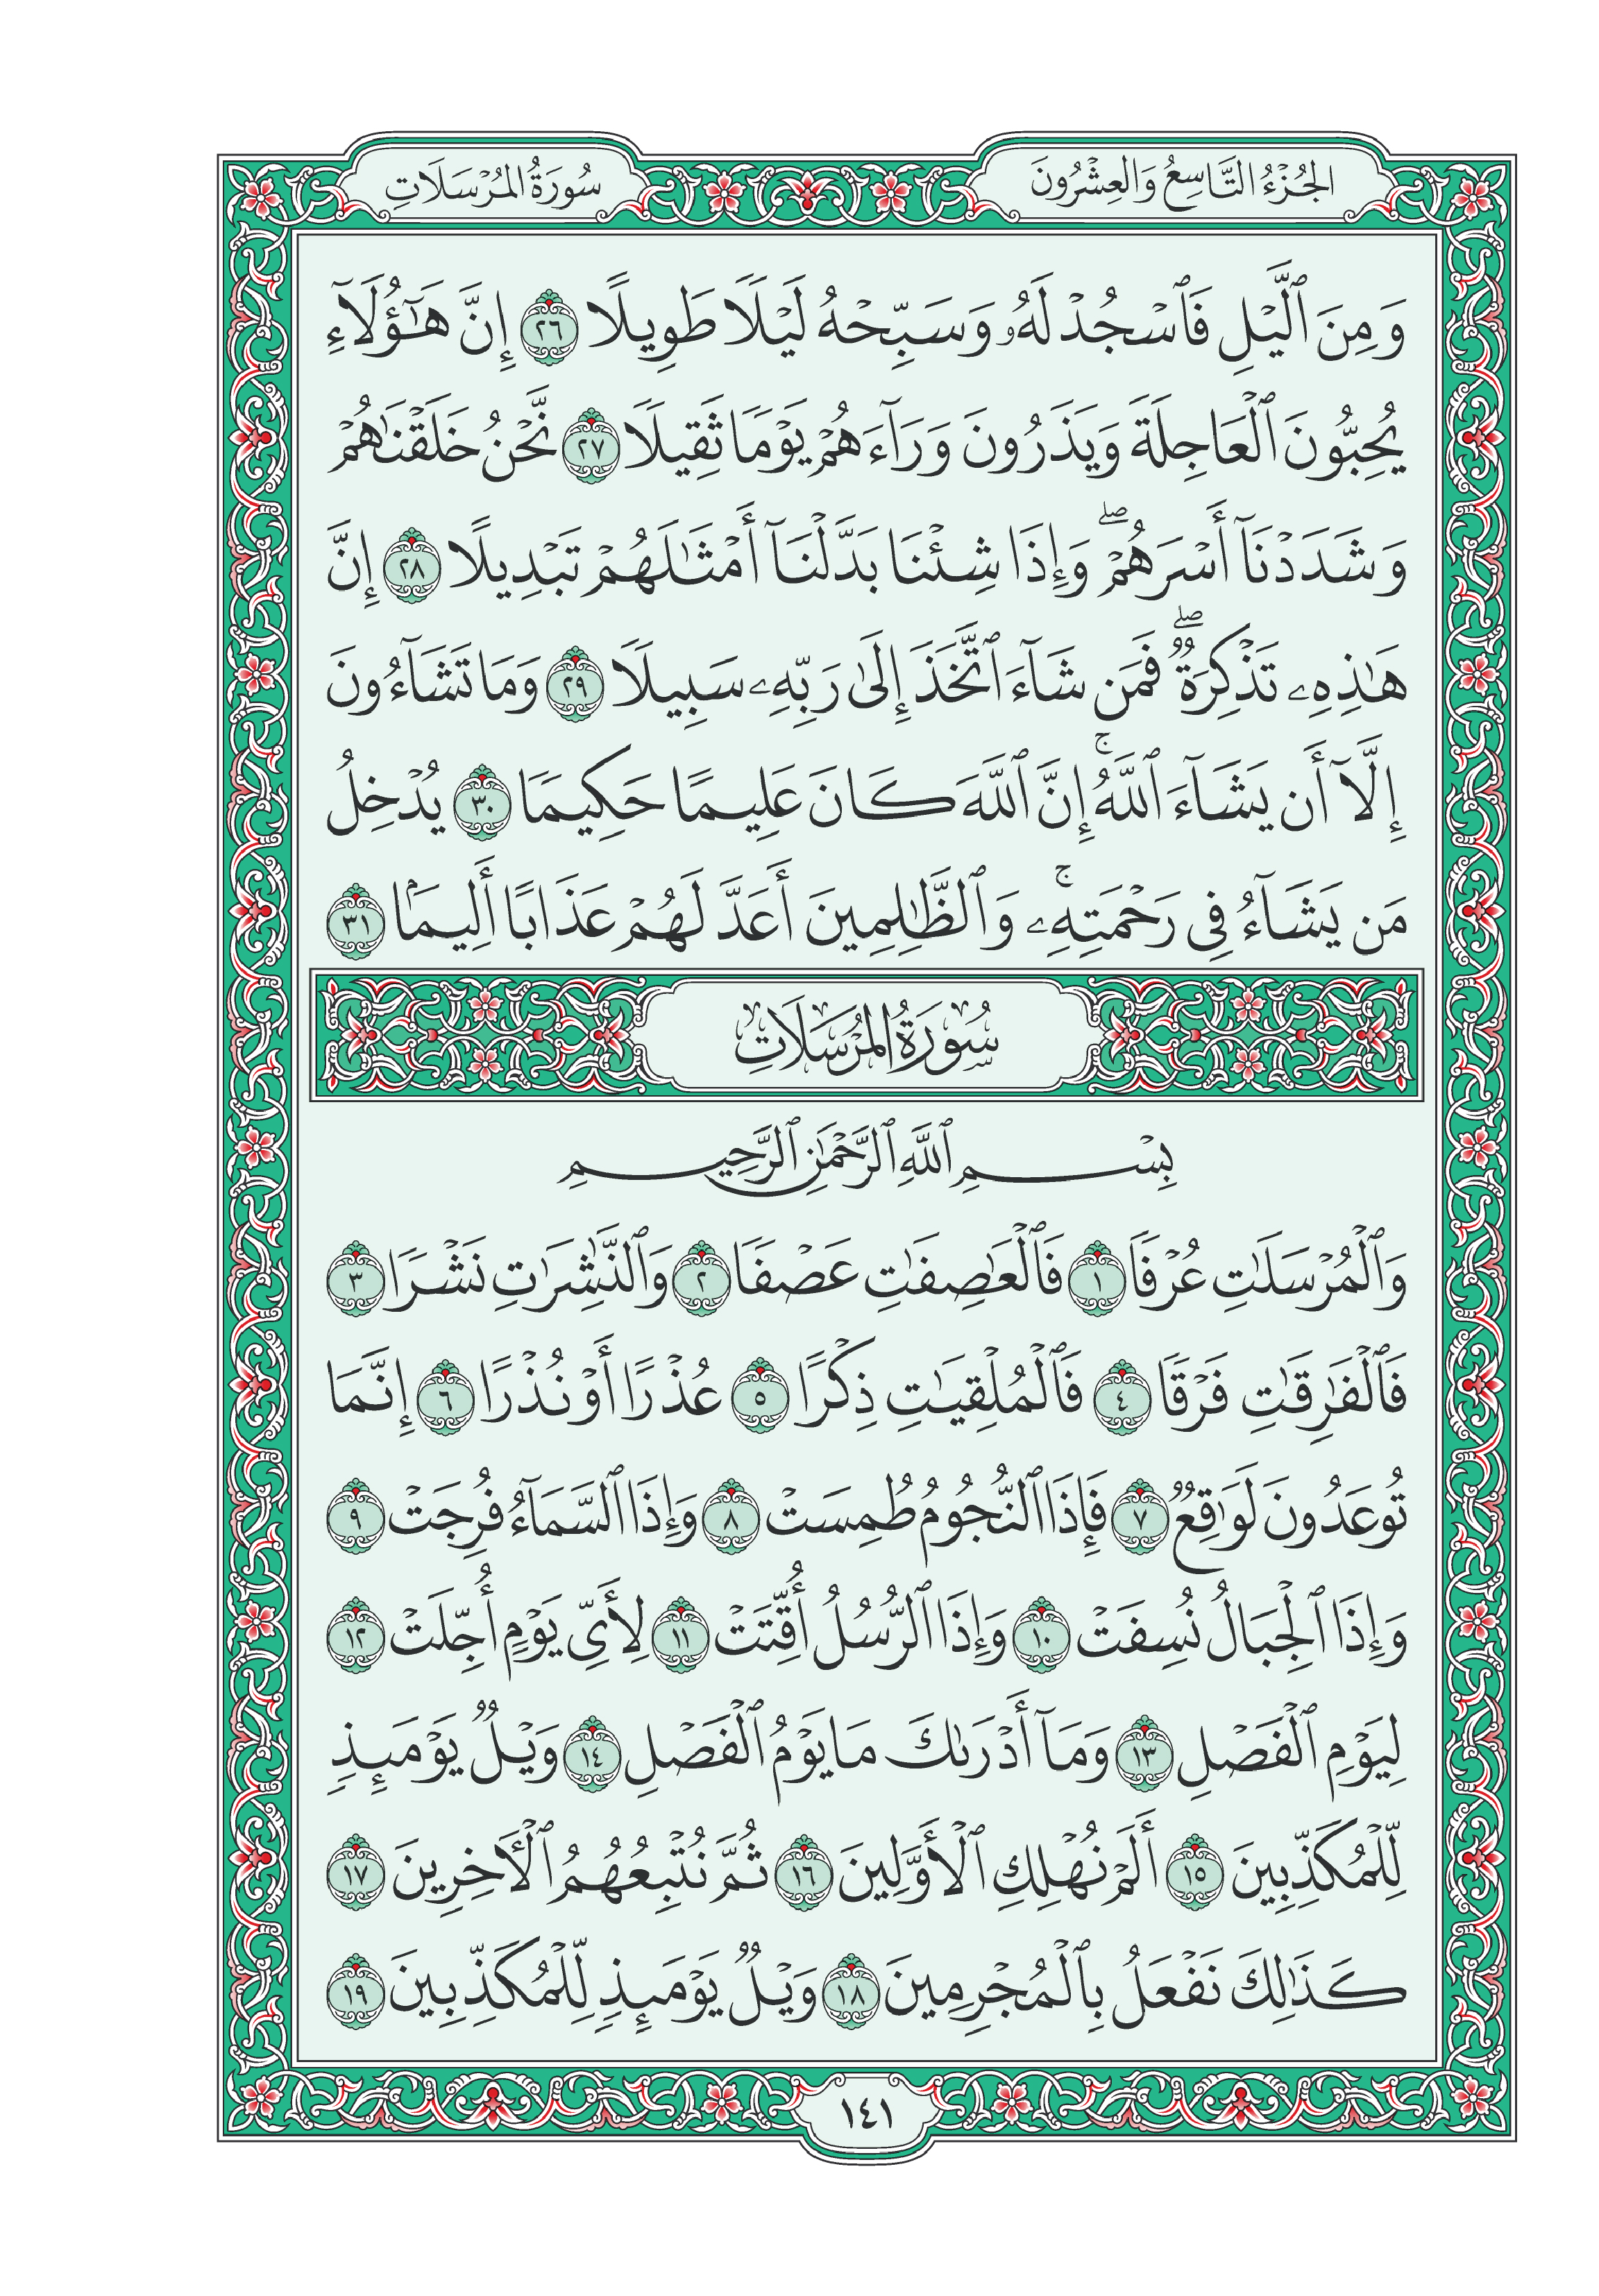 الجُزْءُ التَّاسِعُ وَالعِشْرُونَ
سُورَةُ المُرْسَلَاتِ
وَمِنَ ٱلَّيۡلِ فَٱسۡجُدۡ لَهُۥ وَسَبِّحۡهُ لَيۡلٗا طَوِيلًا ٢٦ إِنَّ هَٰٓؤُلَآءِ
يُحِبُّونَ ٱلۡعَاجِلَةَ وَيَذَرُونَ وَرَآءَهُمۡ يَوۡمٗا ثَقِيلٗا ٢٧ نَّحۡنُ خَلَقۡنَٰهُمۡ
وَشَدَدۡنَآ أَسۡرَهُمۡۖ وَإِذَا شِئۡنَا بَدَّلۡنَآ أَمۡثَٰلَهُمۡ تَبۡدِيلًا ٢٨ إِنَّ
هَٰذِهِۦ تَذۡكِرَةٞۖ فَمَن شَآءَ ٱتَّخَذَ إِلَىٰ رَبِّهِۦ سَبِيلٗا ٢٩ وَمَا تَشَآءُونَ
إِلَّآ أَن يَشَآءَ ٱللَّهُۚ إِنَّ ٱللَّهَ كَانَ عَلِيمًا حَكِيمٗا ٣٠ يُدۡخِلُ
مَن يَشَآءُ فِي رَحۡمَتِهِۦۚ وَٱلظَّٰلِمِينَ أَعَدَّ لَهُمۡ عَذَابًا أَلِيمَۢا ٣١
سُورَةُ المُرْسَلَاتِ
بِسۡمِ ٱللَّهِ ٱلرَّحۡمَٰنِ ٱلرَّحِيمِ
وَٱلۡمُرۡسَلَٰتِ عُرۡفٗا ١ فَٱلۡعَٰصِفَٰتِ عَصۡفٗا ٢ وَٱلنَّٰشِرَٰتِ نَشۡرٗا ٣
فَٱلۡفَٰرِقَٰتِ فَرۡقٗا ٤ فَٱلۡمُلۡقِيَٰتِ ذِكۡرًا ٥ عُذۡرًا أَوۡ نُذۡرًا ٦ إِنَّمَا
تُوعَدُونَ لَوَٰقِعٞ ٧ فَإِذَا ٱلنُّجُومُ طُمِسَتۡ ٨ وَإِذَا ٱلسَّمَآءُ فُرِجَتۡ ٩
وَإِذَا ٱلۡجِبَالُ نُسِفَتۡ ١٠ وَإِذَا ٱلرُّسُلُ أُقِّتَتۡ ١١ لِأَيِّ يَوۡمٍ أُجِّلَتۡ ١٢
لِيَوۡمِ ٱلۡفَصۡلِ ١٣ وَمَآ أَدۡرَىٰكَ مَا يَوۡمُ ٱلۡفَصۡلِ ١٤ وَيۡلٞ يَوۡمَئِذٖ
لِّلۡمُكَذِّبِينَ ١٥ أَلَمۡ نُهۡلِكِ ٱلۡأَوَّلِينَ ١٦ ثُمَّ نُتۡبِعُهُمُ ٱلۡأٓخِرِينَ ١٧
كَذَٰلِكَ نَفۡعَلُ بِٱلۡمُجۡرِمِينَ ١٨ وَيۡلٞ يَوۡمَئِذٖ لِّلۡمُكَذِّبِينَ ١٩
١٤١